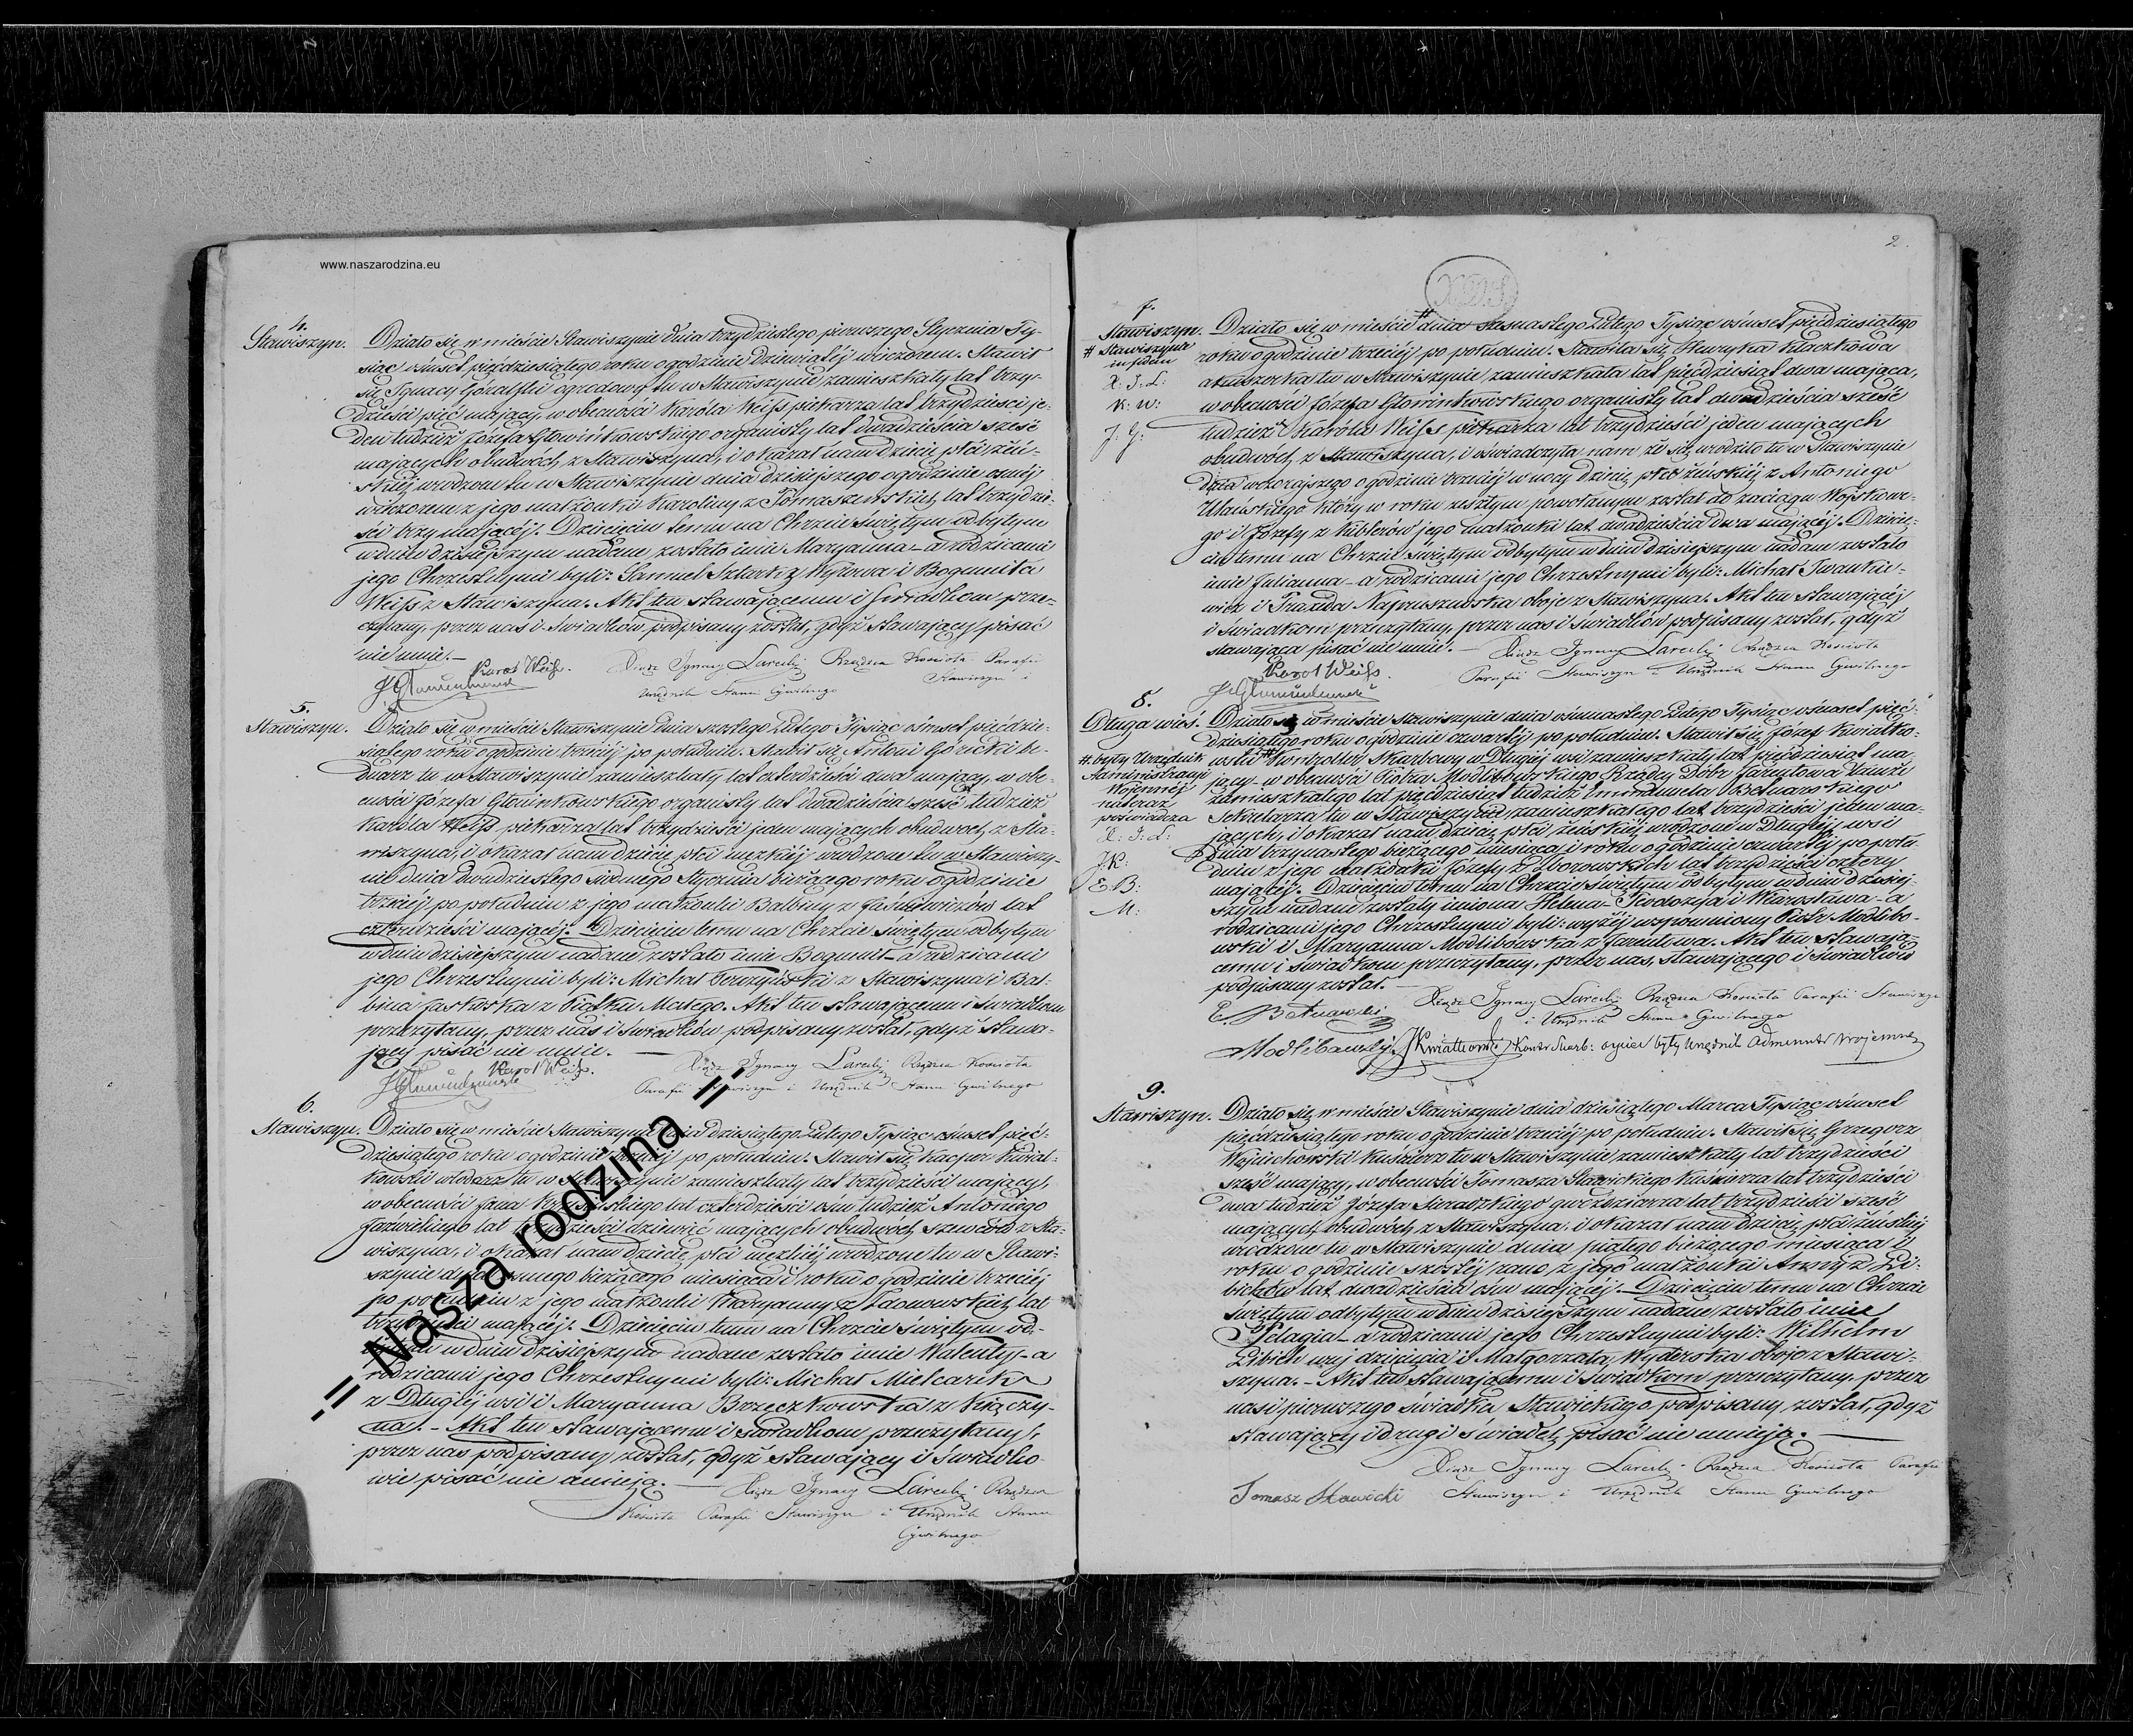 www.naszarodzina.eu
4.
Stawiszyn.
Działo się w mieście Stawiszynie dnia trzydziestego pierwszego Stycznia Ty-
siąc ośmset pięćdziesiątego roku o godzinie dziewiątéj wieczorem. Stawił
się Ignacy Góralski ogrodowy tu w Stawiszynie zamieszkały lat trzy-
dzieści pięć mający, w obecności Karóla Weiſs piekarza lat trzydzieści je-
den tudzież Józefa Głowińkowskiego organisty lat dwadzieścia sześć
mających obudwóch z Stawiszyna, i okazał nam dziecię płci żeń-
skiéj urodzone tu w Stawiszynie dnia dzisiejszego o godzinie ósméj
wieczorem z jego małżonki Karoliny z Tomaszewskich lat trzydzie-
ści trzy mającéj. Dziecięciu temu na Chrzcie świętym odbytym
w dniu dzisiejszym nadane zostało imie Maryanna – a rodzicami
jego Chrzestnymi byli: Samuel Sztark z Wyrowa i Bogumiła
Weiſs z Stawiszyna. Akt ten stawającemu i świadkom prze-
czytany, przez nas i świadków podpisany został, gdyż stawający pisać
nie umie. –
Karol Weiſs. Xiądz Ignacy Rządca Kościoła Parafii
Stawiszyn i
Urzędnik Stanu Cywilnego
5.
Stawiszyn.
Działo się w mieście Stawiszynie dnia szóstego Lutego Tysiąc ośmset pięćdzie-
siątego roku o godzinie trzeciéj po południu. Stawił się Antoni Górecki be-
dnarz tu w Stawiszynie zamieszkały lat czterdzieści dwa mający, w obe-
cności Józefa Głowinkowskiego organisty lat dwadzieścia sześć tudzież
Karóla Weiſs piekarza lat trzydzieści jeden mających obudwóch z Sta-
wiszyna, i okazał nam dziecię płci męzkiéj urodzone tu w Stawiszy-
nie dnia dwudziestego siódmego Stycznia bieżącego roku o godzinie
trzeciéj po południu z jego małżonki Balbiny z lat
czterdzieści mającéj. Dziecięciu temu na Chrzcie świętym odbytym
w dniu dzisiejszym nadane zostało imie Bogumił – a rodzicami
jego Chrzestnymi byli: Michał z Stawiszyna i Bal-
bina Jaskóska z Piątku Małego. Akt ten stawającemu i świadkom
przeczytany, przez nas i świadków podpisany został, gdyż stawa-
jący pisać nie umie. –
Karol Weiſs. Xiądz Ignacy Rządca Kościoła
Parafii Stawiszyn i Urzędnik Stanu Cywilnego
6.
Stawiszyn.
Działo się w mieście Stawiszynie dnia dziesiątego Lutego Tysiąc ośmset pięć-
dziesiątego roku o godzinie trzeciéj po południu. Stawił się Kacper Kwiat-
kowski włodarz tu w Stawiszynie zamieszkały lat trzydzieści mający,
w obecności Jana lat czterdzieści ośm tudzież Antoniego
lat trzydzieści dziewięć mających obudwóch szewców z Sta-
wiszyna, i okazał nam dziecię płci męzkiéj urodzone tu w Stawi-
szynie dnia ósmego bieżącego miesiąca i roku o godzinie trzeciéj
po południu z jego małżonki Maryanny z Zdonowskich lat
trzydzieści mającéj. Dziecięciu temu na Chrzcie świętym od-
bytym w dniu dzisiejszym nadane zostało imie Walenty – a
rodzicami jego Chrzestnymi byli: Michał Mielcarik
z Długiéj wsi i Maryanna Brzęczkowska z Kiączy-
na. – Akt ten stawającemu i świadkom przeczytany,
przez nas podpisany został, gdyż stawający i świadko-
wie pisać nie umieją. –
Xiądz Ignacy Rządca
Kościoła Parafii Stawiszyn i Urzędnik Stanu
Cywilnego
= Nasza rodzina =
2.
7.
Stawiszyn.
# Stawiszynie
X: I: L:
K: W:
J: G:
Działo się w mieście # dnia Lutego Tysiąc ośmset pięćdziesiątego
roku o godzinie trzeciéj po południu. Stawiła się Henryka Kluczkowa
akuszerka tu w Stawiszynie zamieszkała lat pięćdziesiąt dwa mająca,
w obecności Józefa Głowinkowskiego organisty lat dwadzieścia sześć
tudzież Karóla Weiſs piekarza lat trzydzieści jeden mających
obudwóch z Stawiszyna, i oświadczyła nam że się urodziło tu w Stawiszynie
dnia wczorajszego o godzinie trzeciéj w nocy dziecię płci żeńskiéj z Antoniego
Ulańskiego który w roku zeszłym powołanym został do zaciągu Wojskowe-
go i Józefy z Kiblerów jego małżonki lat dwadzieścia dwa mającéj. Dziecię-
ciu temu na Chrzcie świętym odbytym w dniu dzisiejszym nadane zostało
imie Julianna – a rodzicami jego Chrzestnymi byli: Michał Iwankie-
wicz i Praxeda Napruszewska oboje z Stawiszyna. Akt ten stawającéj
i świadkom przeczytany, przez nas i świadków podpisany został, gdyż
stawająca pisać nie umié. –
Xiądz Ignacy Rządca Kościoła
Karol Weiſs Parafii Stawiszyn i Urzędnik Stanu Cywilnego
8.
Długa wieś.
# były Urzędnik
Administracyi
Wojennéj
poświadcza
X: I: L:
J: K:
E: B:
M:
Działo się w mieście Stawiszynie dnia ośmnastego Lutego Tysiąc ośmset pięć-
dziesiątego roku o godzinie czwartéj po południu. Stawił się Józef Kwiatko-
wski # Kontroller Skarbowy w Długiéj wsi zamieszkały lat pięćdziesiąt ma-
jący – w obecności Piotra Modlibowskiego Rządcy Dóbr Zarentowa tamże
zamieszkałego lat pięćdziesiąt tudzież Emanuela Bednarskiego
Sekretarza tu w Stawiszynie zamieszkałego lat trzydzieści jeden ma-
jących, i okazał nam dziecię płci żeńskiéj urodzone w Długiéj wsi
dnia trzynastego bieżącego miesiąca i roku o godzinie czwartéj po połu-
dniu z jego małżonki Józefy z Zborowskich lat trzydzieści cztery
mającéj. Dziecięciu temu na Chrzcie świętym odbytym w dniu dzisiej-
szym nadane zostały imiona Helena – Teodozija i Wiarosława – a
rodzicami jego Chrzestnymi byli: wyżéj wspomniony Piotr Modlibo-
wski i Maryanna Modlibowska z Zarentowa. Akt ten stawają-
cemu i świadkom przeczytany, przez nas, stawającego i świadków
podpisany został. –
Xiądz Ignacy Rządca Kościoła Parafii Stawiszyn
i Urzędnik Stanu Cywilnego
Modlibowski JKwiatkowski Kontr Skarb: ojciec były Urzędnik
9.
Stawiszyn.
Działo się w mieście Stawiszynie dnia dziesiątego Marca Tysiąc ośmset
pięćdziesiątego roku o godzinie trzeciéj po południu. Stawił się Grzegorz
Wojciechowski Kuśnierz tu w Stawiszynie zamieszkały lat trzydzieści
sześć mający, w obecności Tomasza Sławickiego Kuśnierza lat trzydzieści
dwa tudzież Józefa Sieradzkiego gwoździarza lat trzydzieści sześć
mających obudwóch z Stawiszyna, i okazał nam dziecię płci żeńskiéj
urodzone tu w Stawiszynie dnia piątego bieżącego miesiąca i
roku o godzinie szóstéj rano z jego małżonki Anny z Li-
bichów lat dwadzieścia ośm mającéj. Dziecięciu temu na Chrzcie
świętym odbytym w dniu dzisiejszym nadane zostało imie
Pelagia – a rodzicami jego Chrzestnymi byli: Wilhelm
Libich wuj dziecięcia i Małgorzata Wyderska oboje z Stawi-
szyna. – Akt ten stawającemu i świadkom przeczytany, przez
nas i pierwszego świadka Sławickiego podpisany został, gdyż
stawający i drugi świadek pisać nie umieją. –
Xiądz Ignacy Rządca Kościoła Parafii
Tomasz Sławicki Stawiszyn i Urzędnik Stanu Cywilnego